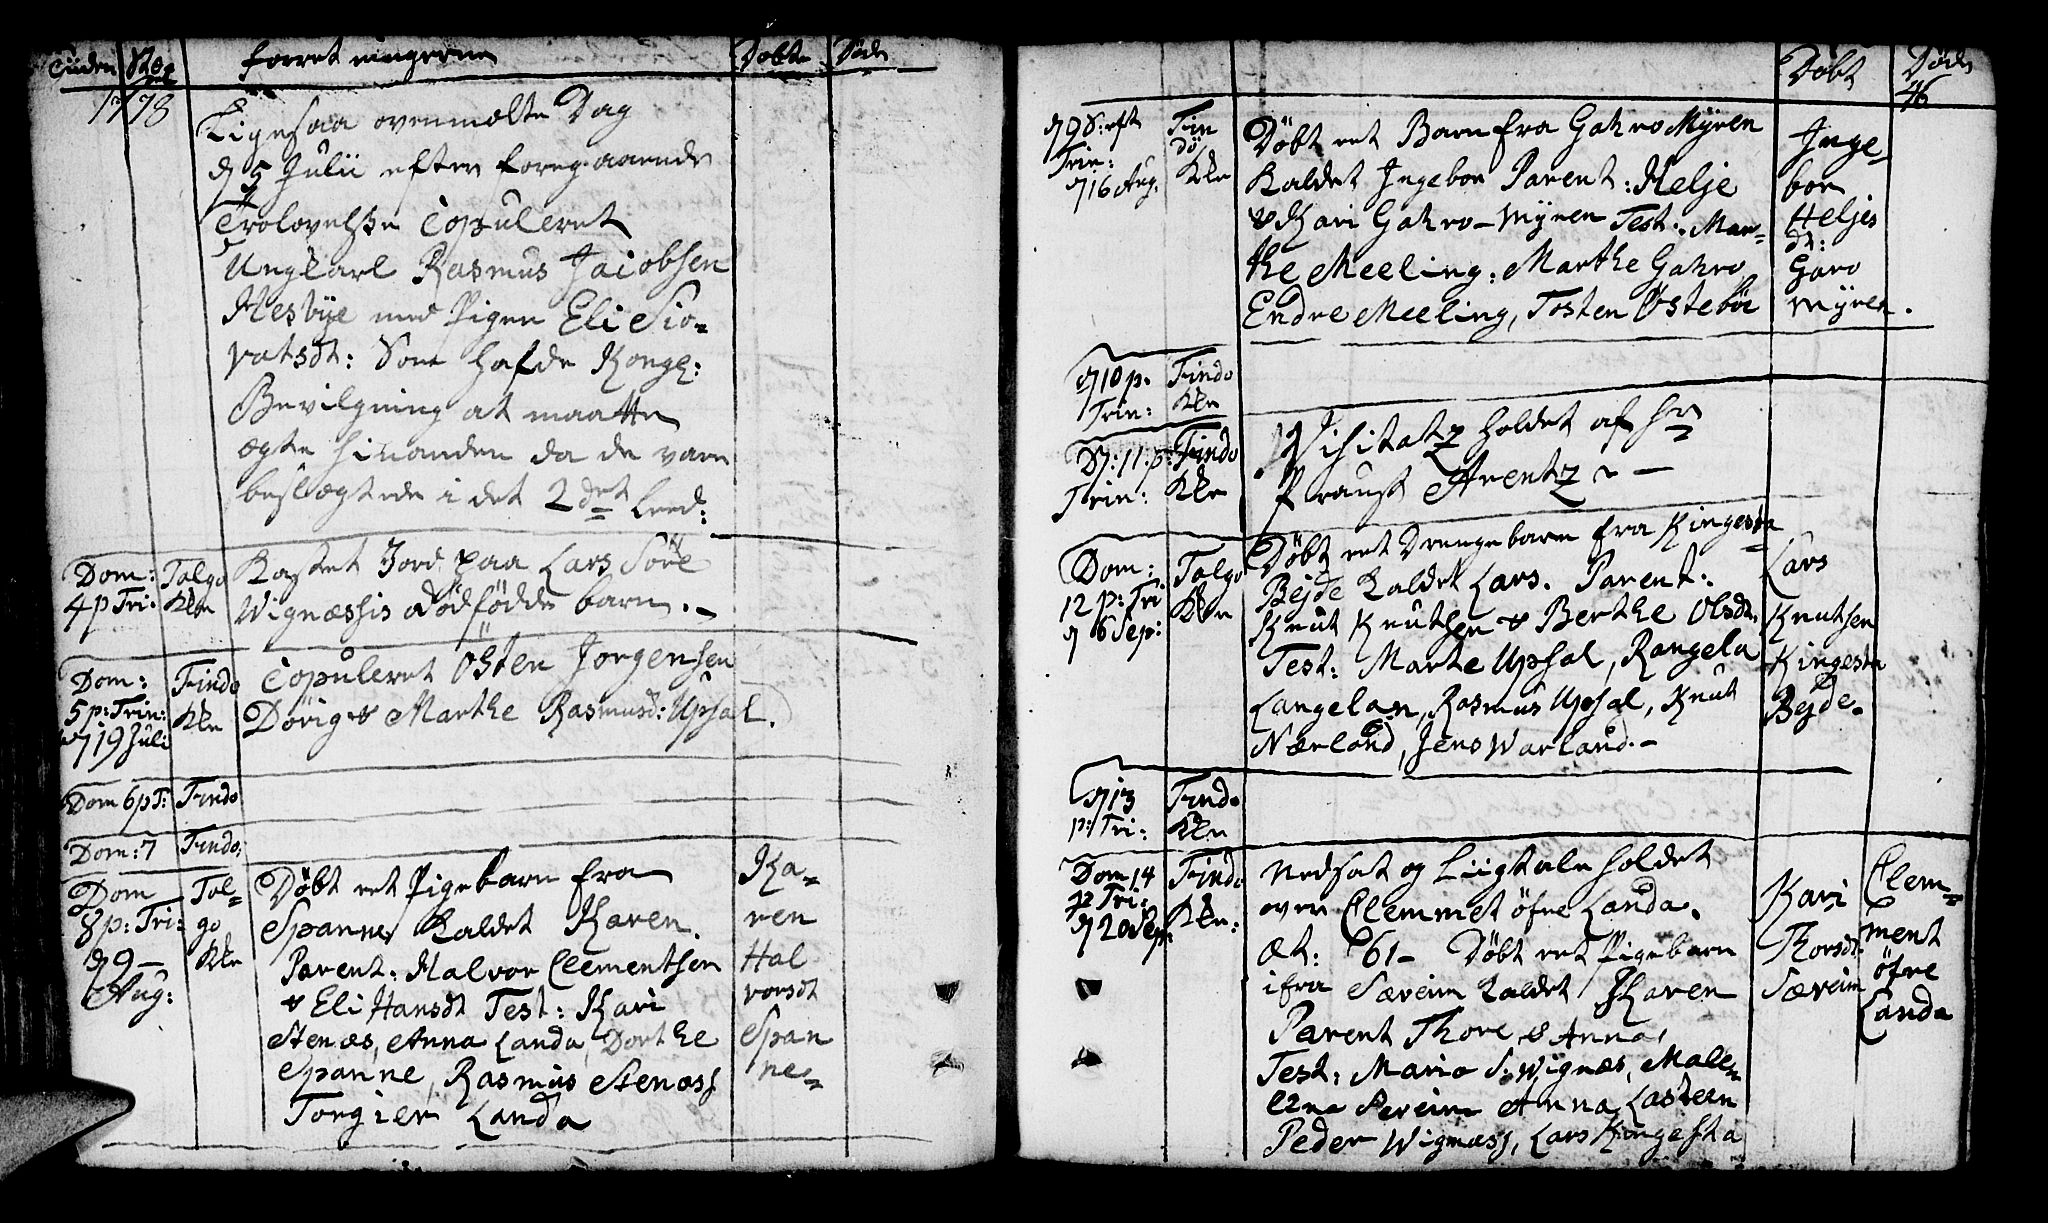 Tiiden Steg forretningerne Dobte Döde
1778
Ligesaa ovenmelte Dag
d 5 Julii efter foregaaende
Trolovelsse Copuleret
Ungkarl Rasmus Jacobsen
Hesbÿe med Pigen Eli Sio-
vatsdt: Som hafde Kongl:
Bevilgning at maatte
ægte hinanden da de vare
beslægtede i det 2det Leed:
Dom: 4 p Tri: Talgø Kke
Kastet Jord paa Lars Söre
Wignæssis dödfödde barn.-
Dom: 5 p: Trin: d 19 Juli Findø Kke
Copuleret Östen Jorgensen
Dörig & Marthe Rasmusd: Upsal.
Dom 6 p T: Findø
Dom: 7 Findø.
Dom 8 p: Tri: d 9- Aug: Tal- gø Kke
Döbt et Pigebarn fra
Spanne kaldet Karen.
Parent: Halvor Clementsen
& Eli Hansdt Test: Kari
Stenæs, Anna Landa, Dorthe
Spanne, Rasmus Stenæss
Torgier Landa
Ka-
ren
Hal
vorsdt
Span
ne-
Döbt Döde
46
d 9 S: eft Trin: d 16 Aug. Fin dö Kke
Döbt et Barn fra Gahro Mÿren
Kaldet Ingebor Parent: Helje
& Kari Gahro-Mÿren Test: Mar-
the Meeling: Marthe Gahro
Endre Meeling, Tosten Östebör
Inge-
bor
Heljes
dt:
Garo
Mÿren.
d 10 p. Trin: Findø Kke
D: 11. p: Trin: Findø Kke
Visitatz holdet af Hr
Proust Arentz
Dom: 12 p: Tri d 6 Sep: Talgø Kke
Döbt et Drengebarn fra Kingesta
Bejde kaldet Lars. Parent:
Knut Knutsen & Berthe Olsdt.
Test: Marte Upsal, Rangela
Langeland, Rasmus Upsal, Knut
Nærland, Jens Warland.-
Lars
Knutsen
Kingesta
Bejde.
d 13 p: Tri: Findø Kke
Dom 14 p Tri: d 20 Sep. Findø Kke:
Nedsat og Liigtale holdet
over Clemmet öfre Landa.
Æt: 61- Döbt et Pigebarn
ifra Særeim kaldet Karen
Parent Thore & Anna,
Test: Maria S. Wignæs, Male-
ene Sereim Anna Lasteen
Peder Wignæss, Lars Kingesta
Kari
Thorsdt
Særeim
Clem-
ment
öfre
Landa